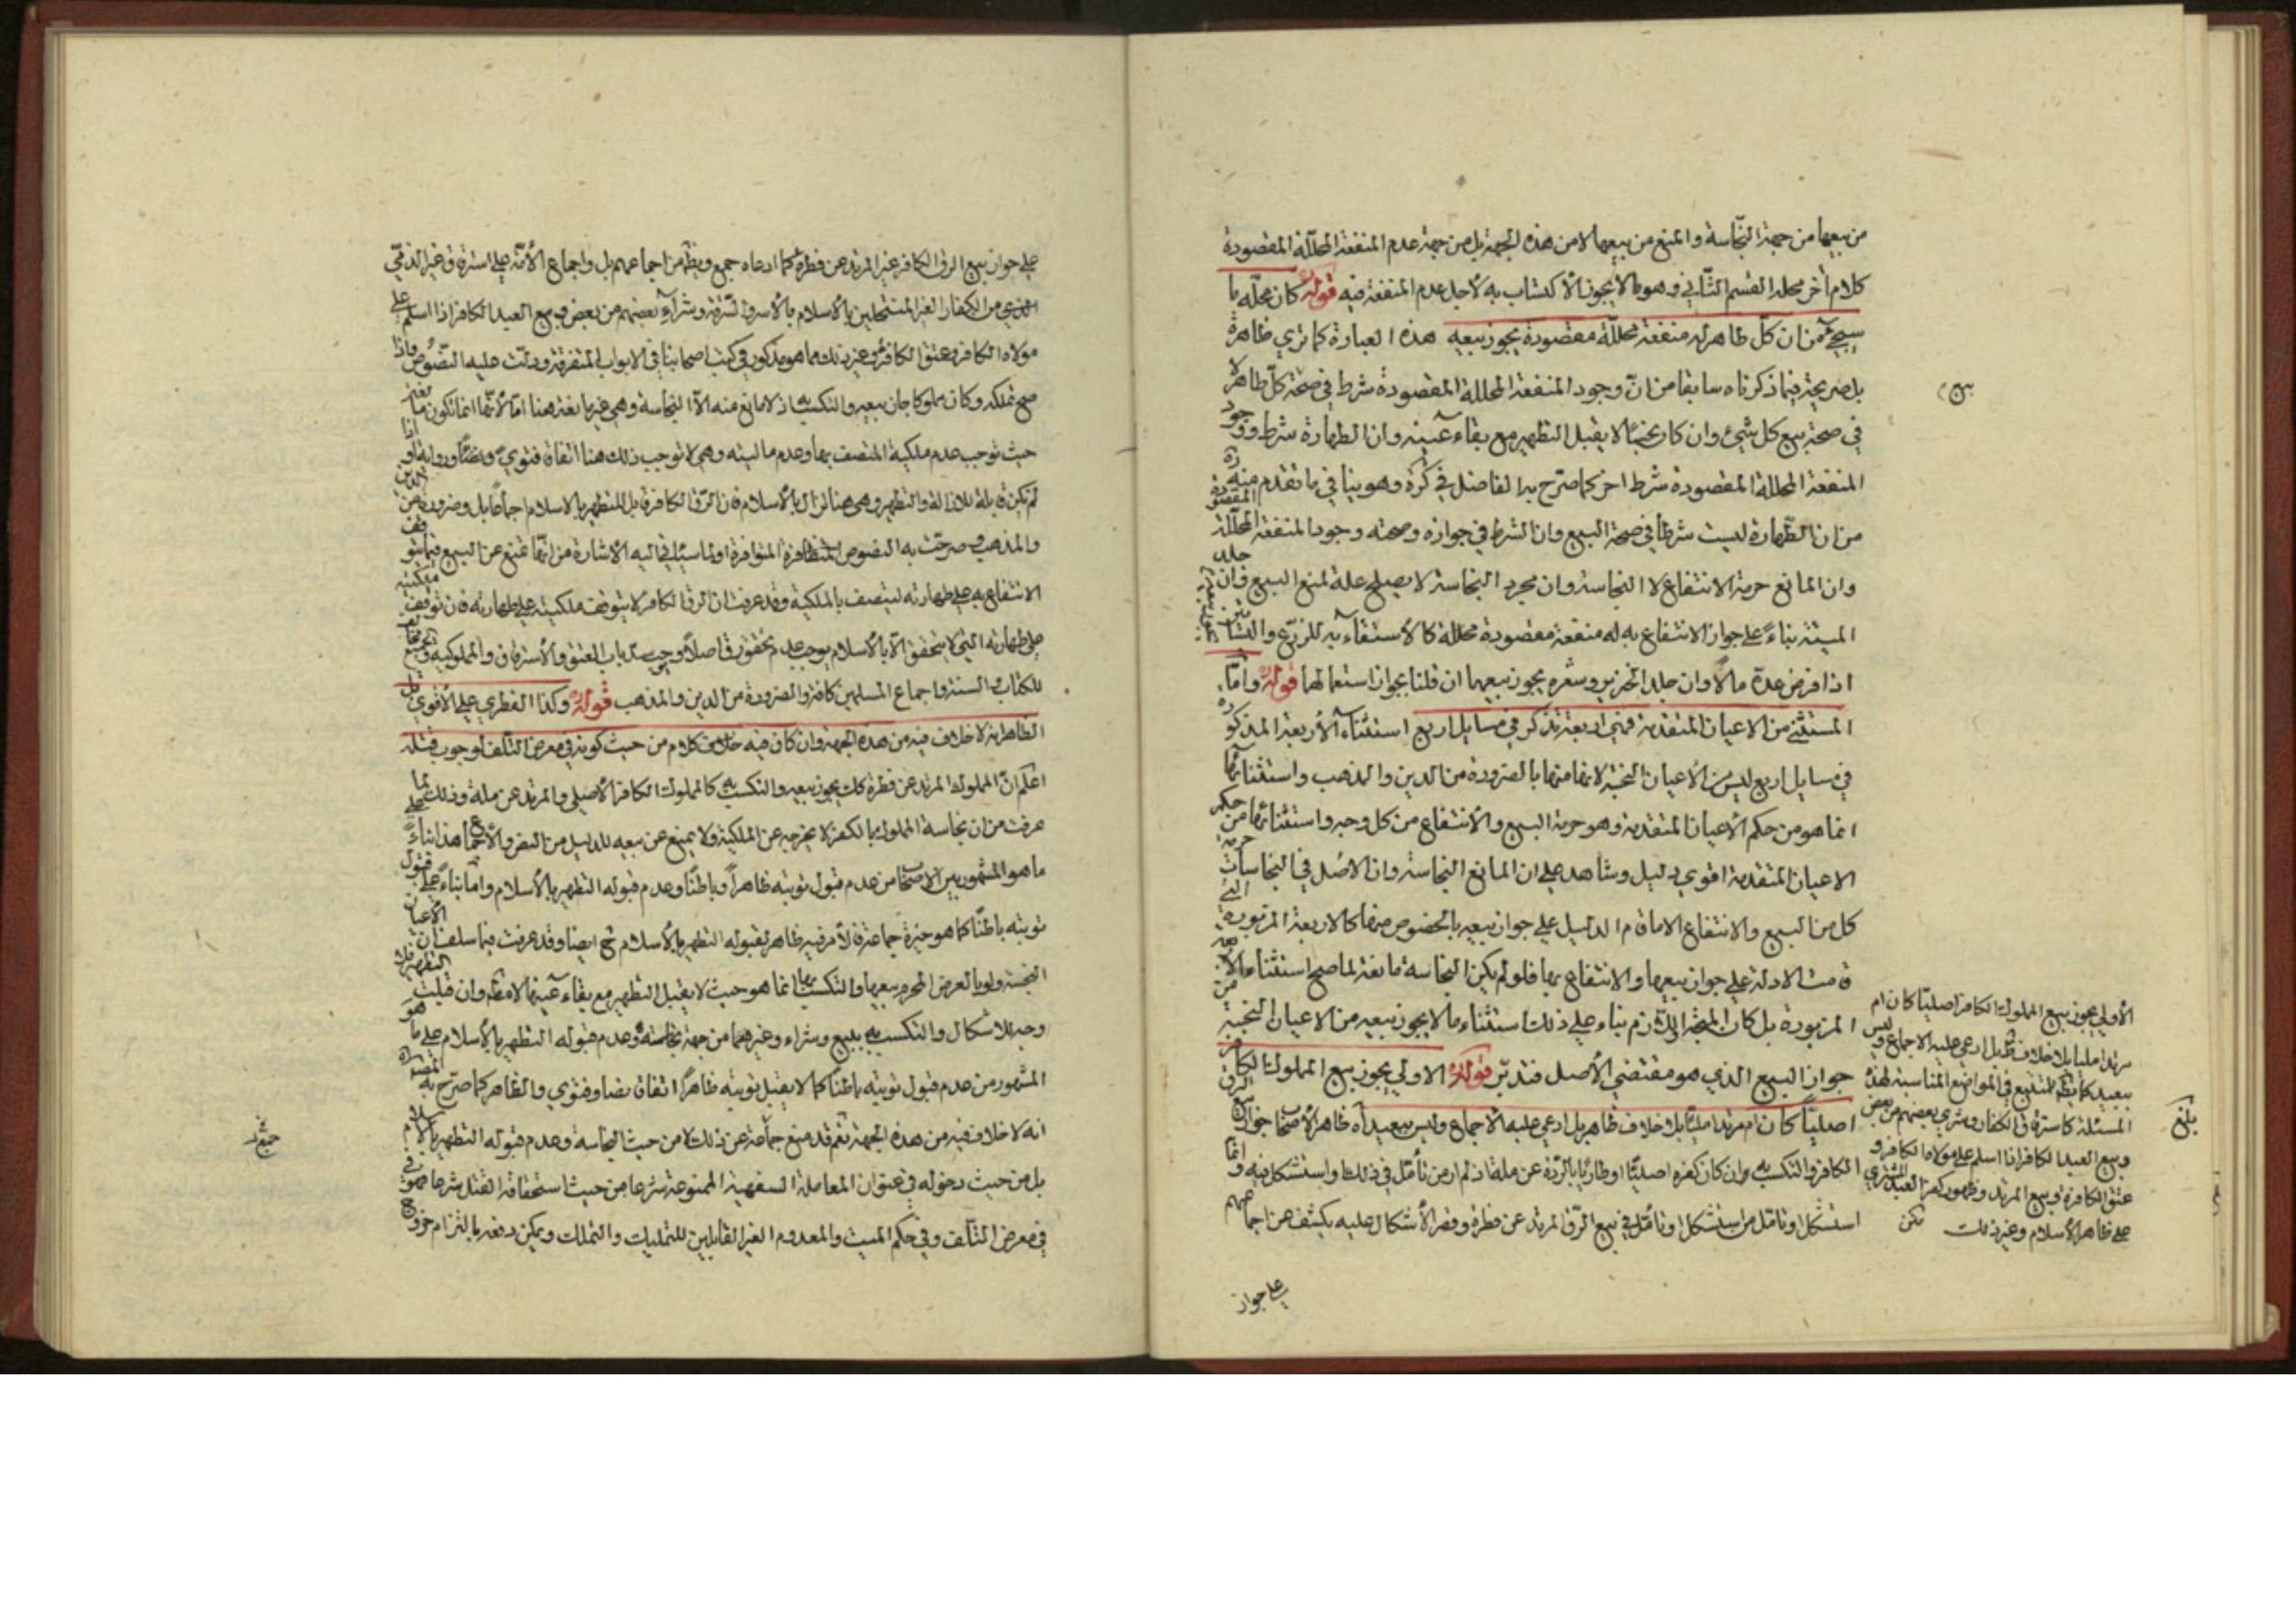 من بيعها من جهة النجاسة والمنع من بيعها لا من هذه الجهة بل من جهة عدم المنفعة المحللة المقصودة
كلام آخر محله القسم الثاني وهو ما لا يجوز الاكتساب به لأجل عدم المنفعة فيه قوله كان محله ما
سيجئ من ان كل طاهر له منفعة محللة مقصودة يجوز بيعه هذه العبارة كما ترى ظاهرة
بل صريحة فيما ذكرناه سابقا من ان وجود المنفعة المحللة المقصودة شرط في صحة كل طاهر لا
في صحة بيع كل شيء وان كان نجسا لا يقبل التطهير مع بقاء عينه وان الطهارة شرط ووجود
المنفعة المحللة المقصودة شرط اخر كما صرح به الفاضل في كره وهو ينافي ما تقدم منه ره
من ان الطهارة ليست شرطا في صحة البيع وان الشرط في جوازه وصحته وجود المنفعة المحللة المقصودة
وان المانع حرمة الانتفاع لا النجاسة وان مجرد النجاسة لا يصلح علة لمنع البيع فان جلد
الميتة بناء على جواز الانتفاع به له منفعة مقصودة محللة كالاستقاء به للزرع
اذا فرض عدة مالا وان جلد الخنزير وشعره يجوز بيعهما ان قلنا بجواز استعمالها قوله واما
المستثنى من الاعيان المتقدمة فهي اربعة تذكر في مسايل اربع استثناء الأربعة المذكوره
في مسايل اربع ليس من الأعيان النجسة لانها منها بالضرورة من الدين والمذهب واستثنائها
انما هو من حكم الأعيان المتقدمة وهو حرمة البيع والانتفاع من كل وجه واستثنائها من حكم
الاعيان المتقدمة اقوى دليل وشاهد على ان المانع النجاسة وان الاصل في النجاسات حرمة
كل من البيع والانتفاع الا ما قام الدليل على جواز بيعه بالخصوص منها كالاربعة المزبورة التي
قامت الادلة على جواز بيعها والانتفاع بها فلو لم يكن النجاسة مانعة لما صح استثناء الأربعة
المزبورة بل كان المتجه اللازم بناء على ذلك استثناء ما لا يجوز بيعه من الاعيان النجسة من
جواز البيع الذي هو مقتضى الأصل فتدبر قوله الاولى يجوز بيع المملوك الكافر
اصليا كان ام مرتدا مليا بلا خلاف ظاهر بل ادعى عليه الاجماع وليس ببعيد اه ظاهر الأصحاب جواز بيع الرق
الكافر والتكسب به وان كان كفره اصليا او طاريا بالردة عن ملة اذ لم ار من تأمل في ذلك او استشكل فيه وانما
استشكل او تأمل من استشكل او تأمل في بيع الرق المرتد عن فطرة وقصر الأشكال عليه يكشف عن اجماعهم
على جواز
الأولى يجوز بيع المملوك الكافر اصليا كان ام
مرتدا مليا بلا خلاف ظ بل ادعى عليه الاجماع وليس
ببعيد كما يظهر للمتتبع في المواضع المناسبة لهذه
المسئلة كاسترقاق الكفار وشرى بعضهم من بعض
وبيع العبد الكافر اذا اسلم على مولاه الكافر و
عتق الكافرة وبيع المرتد وظهور كفر العبد المشترى
على ظاهر الأسلام وغير ذلك
بلغ
على جواز بيع الرق الكافر غير المرتد عن فطرة كما ادعاه جمع ويظهر من اجماعهم بل واجماع الأمة على استرقاق غير الذمي
من الكفار الغير المنتحلين بالأسلام بالأسر والسرقة وشراء بعضهم من بعض وبيع العبد الكافر اذا اسلم على
مولاه الكافر وعتق الكافر وغير ذلك مما هو مذكور في كتب اصحابنا في الابواب المتفرقة ودلت عليه النصوص واذا
صح تملكه وكان مملوكا جاز بيعه والتكسب به اذ لا مانع منه الا النجاسة وهي غير مانعة هنا اما لأنها انما تكون مانعة
حيث توجب عدم ملكية المتصف بها وعدم ماليته وهي لا توجب ذلك هنا اتفاقا فتوى ونصا ورواية او اذا
لم تكن قابلة للازالة والتطهير وهي هنا تزال بالأسلام فان الرق الكافر قابل للتطهير بالاسلام اجماعا بل وضرورة من الدين
والمذهب وصرحت به النصوص المتظافرة المتوافرة او لما سبق اليه الأشارة من انها تمنع عن البيع فيما يتوقف
الانتفاع به على طهارته ليتصف بالملكية وقد عرفت ان الرق الكافر لا يتوقف ملكيته على طهارته فان توقف ملكيته
على طهارته التي لا يتحقق الا بالأسلام يوجب عدم تحقق رق اصلا وسد باب العتق والأسترقاق والمملوكية
للكتاب والسنة واجماع المسلمين كافة والضرورة من الدين والمذهب قوله وكذا الفطري على الأقوى بل
الظاهر انه لا خلاف فيه من هذه الجهة وان كان فيه كلام من حيث كونه في معرض التلف لوجوب قتله
اعلم ان المملوك المرتد عن فطرة كك يجوز بيعه والتكسب به كالمملوك الكافر الأصلي والمرتد عن ملة وذلك لما
عرفت من ان نجاسة المملوك بالكفر لا يخرجه عن الملكية ولا يمنع عن بيعه للدليل من النص والأجماع هذا بناء على
ما هو المشهور بين الأصحاب من عدم قبول توبته ظاهرا وباطنا وعدم قبوله التطهير بالأسلام واما بناء على قبول
توبته باطنا كما هو خيرة جماعة فالأمر فيه ظاهر لقبوله التطهير بالأسلام ح ايضا وقد عرفت فيما سلف ان الأعيان
النجسة ولو بالعرض المحرم بيعها والتكسب بها انما هو حيث لا يقبل التطهير مع بقاء عينها لا مطلقا وان قبلت التطهير فلا
وجه للاشكال والتكسب به ببيع وشراء وغيرهما من جهة نجاسته وعدم قبوله التطهير بالأسلام على ما هو
المشهور من عدم قبول توبته باطنا كما لا يقبل توبته ظاهرا اتفاقا نصا وفتوى والظاهر كما صرح به المصنف ره
انه لا خلاف فيه من هذه الجهة نعم قد منع جماعة عن ذلك لا من حيث النجاسة وعدم قبوله التطهير بالأسلام
بل من حيث دخوله في عنوان المعاملة السفهية الممنوعة شرعا من حيث استحقاقه القتل شرعا فهو في
معرض التلف وفي حكم الميت والمعدوم الغير القابلين للتمليك والتملك ويمكن دفعه بالتزام خروج